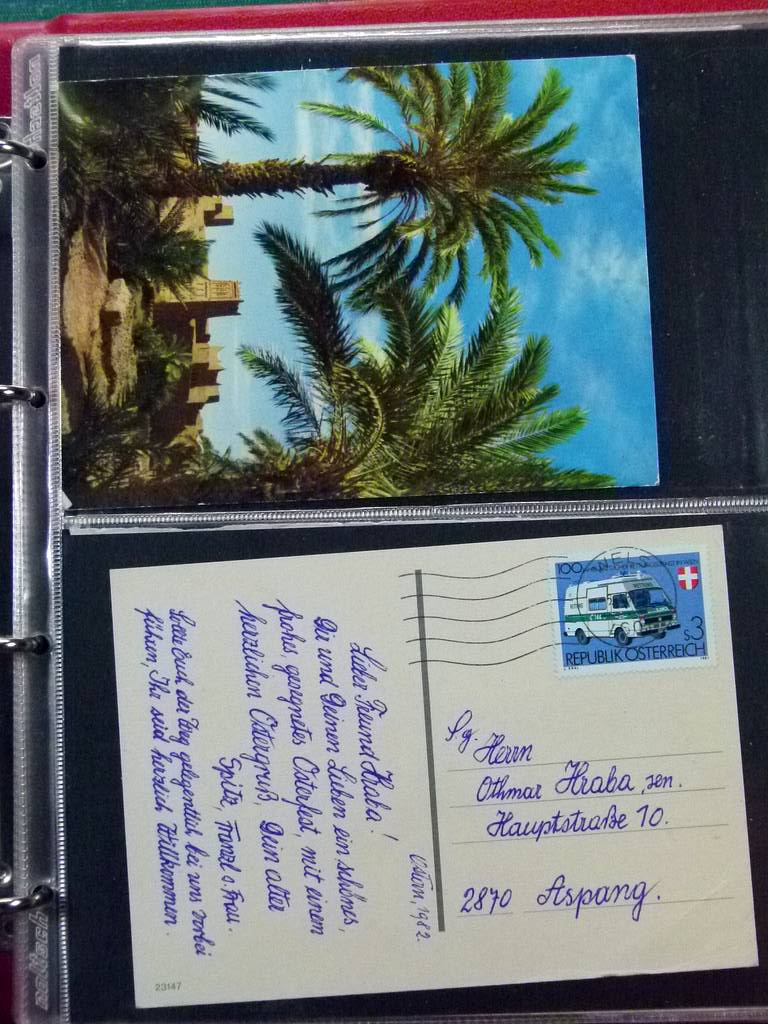 Lieber Freund Hraba!
Dir und Deinen Lieben ein schönes,
frohes, gesegnetes Osterfest, mit einem
herzlichen Ostergruß, Dein alter
Spitz, Franzl u. Frau.
Sollte Euch der Weg gelegentlich bei uns vorbei
führen, Ihr seid herzlich Willkommen.
Ostern, 1982.
23147
100
REPUBLIK ÖSTERREICH
S3
144
Herrn
Othmar Hraba, sen.
Hauptstraße 10.
2870 Aspang.